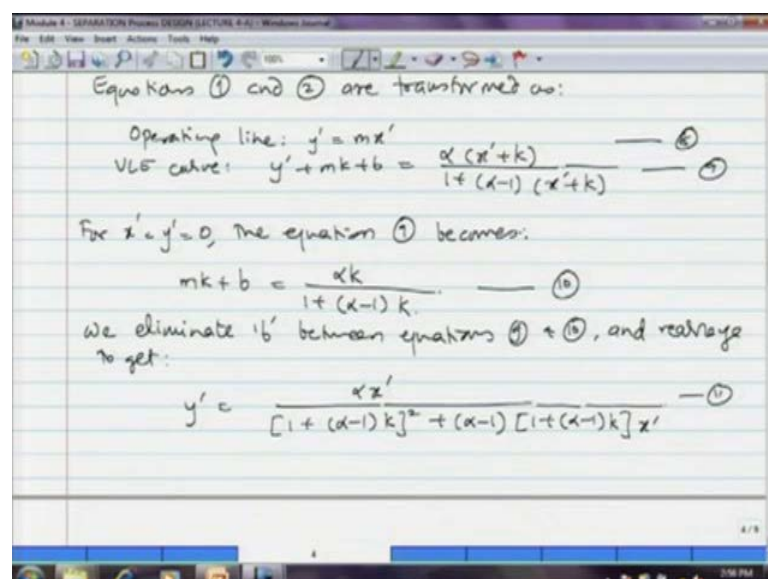 Module 4 - SEPARATION Process DESIGN (LECTURE 4-A) - Windows Journal
File Edit View Insert Actions Tools Help
Equations ① and ② are transformed as:
Operating line: y' = mx' —— ⑧
VLE curve: y' + mk + b = α (x'+k) / 1 + (α-1) (x'+k) —— ⑨
For x' = y' = 0, The equation ⑨ becomes:
mk + b = αk / 1 + (α-1) k. —— ⑩
We eliminate 'b' between equations ⑨ & ⑩, and rearrange
to get:
y' = αx' / [1 + (α-1) k]² + (α-1) [1 + (α-1) k] x' — ⑪
4
2:56 PM